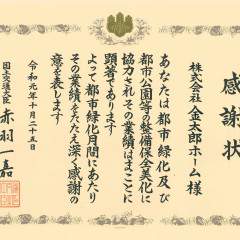 感謝状
株式会社八金太郎ホーム様
あなたは都市緑化及び
都市公園等の整備保全美化に
協力されその業績はまことに
顕著であります
よって都市緑化月間にあたり
その業績をたたえ深く感謝の
意を表します
令和元年十月二十五日
国土交通大臣 赤羽一嘉